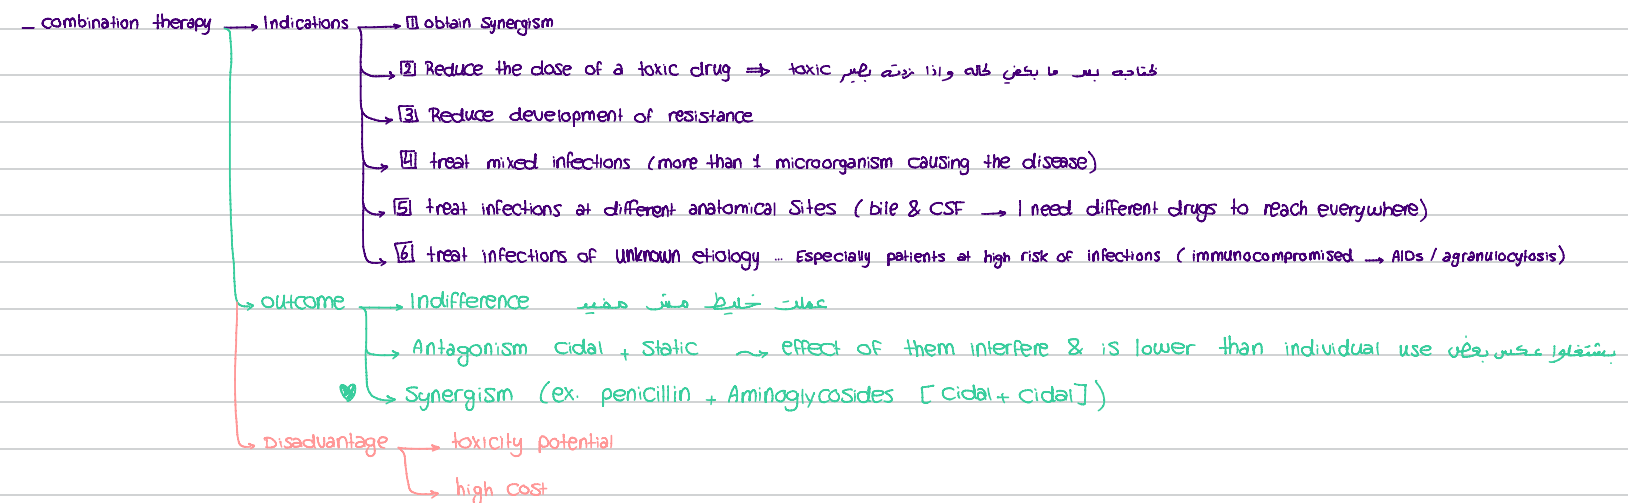 – combination therapy → Indications → 1 obtain synergism
→ 2 Reduce the dose of a toxic drug ⇒ toxic بحتاجه بس ما بكفي لحاله واذا زدته بصير
→ 3 Reduce development of resistance
→ 4 treat mixed infections (more than 1 microorganism causing the disease)
→ 5 treat infections at different anatomical sites (bile & CSF → I need different drugs to reach everywhere)
→ 6 treat infections of unknown etiology ... Especially patients at high risk of infections (immunocompromised → AIDs / agranulocytosis)
→ outcome → Indifference عملت خليط مش مفيد
→ Antagonism cidal + static ~> effect of them interfere & is lower than individual use بشتغلوا عكس بعض
♥ → Synergism (ex. penicillin + Aminoglycosides [cidal + cidal])
→ Disadvantage → toxicity potential
→ high cost